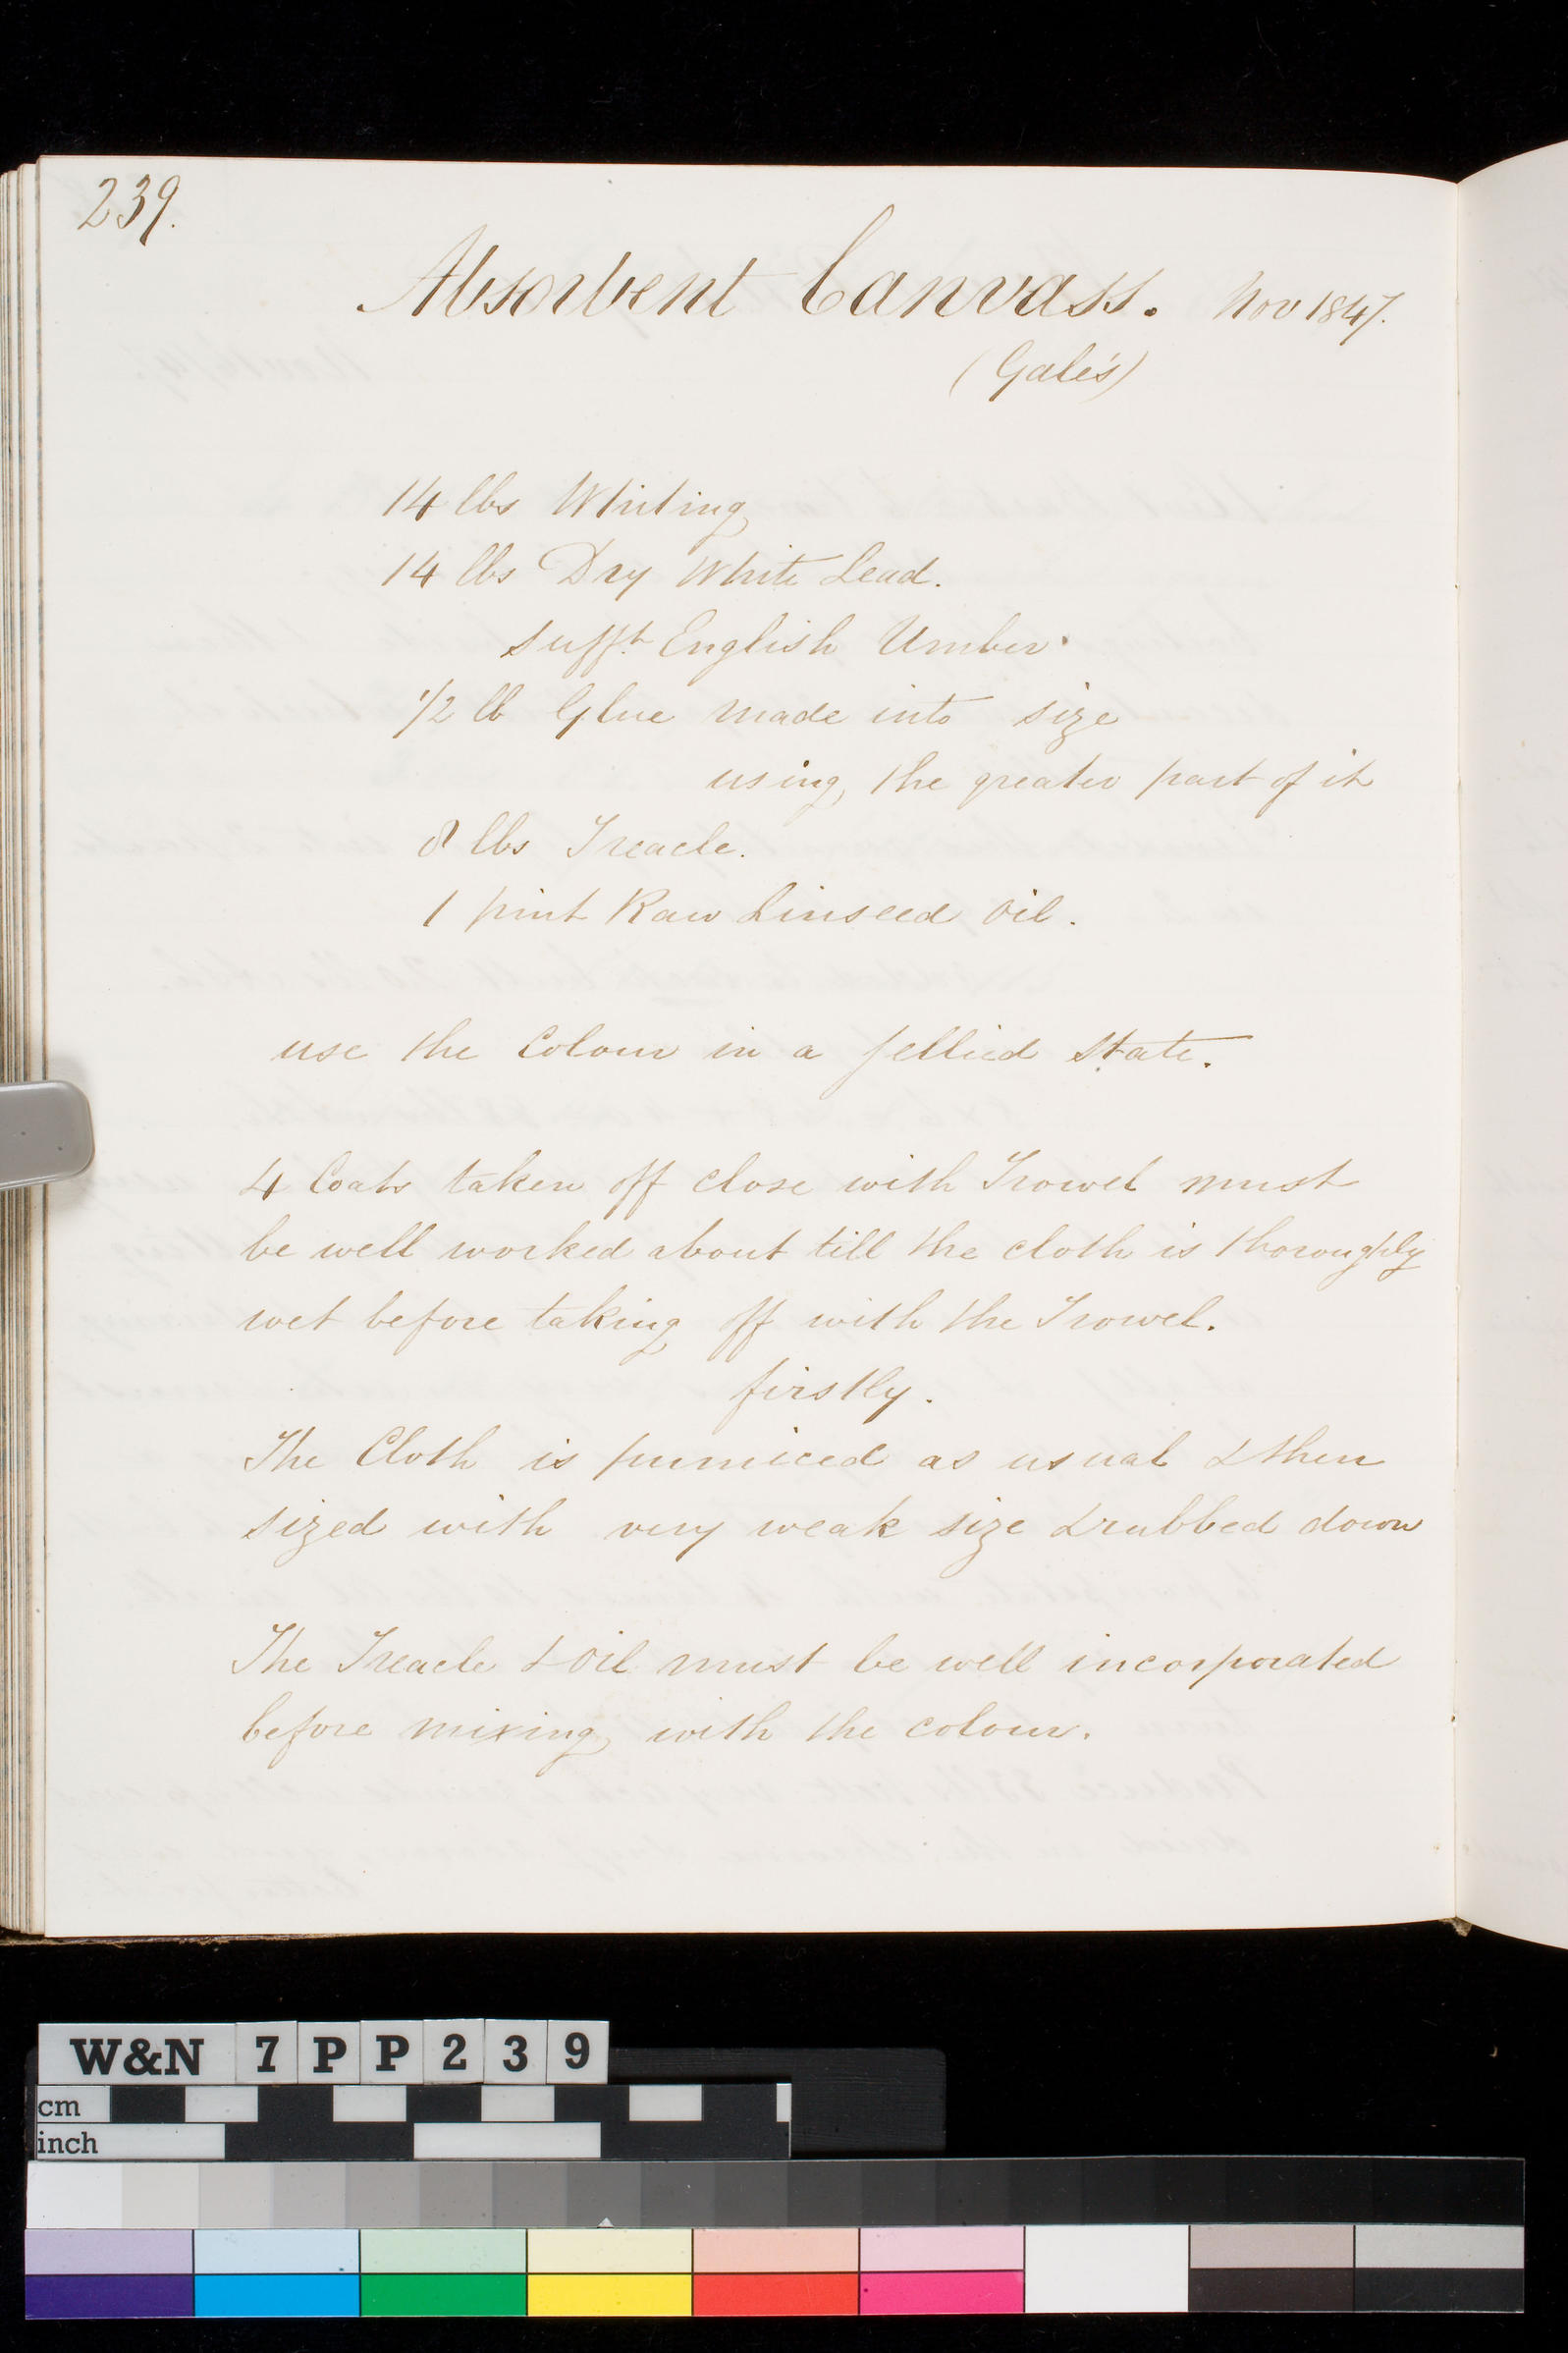 239.
Absorbent Canvass. Nov 1847.
(Gale's)
14 lbs Whiting
14 lbs Dry White Lead.
Sufft. English Umber
1/2 lb Glue made into size
using the greater part of it
8 lbs Treacle.
1 pint Raw Linseed Oil.
use the Colour in a jellied state.
4 Coats taken off close with Trowel must
be well worked about till the cloth is thoroughly
wet before taking off with the Trowel.
firstly.
The Cloth is pumiced as usual & then
sized with very weak size & rubbed down
The Treacle & Oil must be well incorporated
before mixing with the colour.
W&N 7PP239
cm
inch